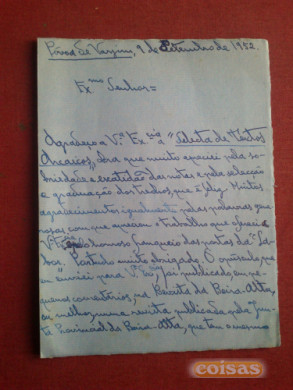 Póvoa de Varzim, 9 de Setembro de 1952
Ex.mo Senhor =
Agradeço a V.ª Ex.cia a "Selecta de Textos
Arcaicos", obra que muito apreciei pela so-
briedade e exatidão das notas e pela selecção
e graduação dos trechos que é feliz. Muitos
agradecimentos igualmente pelas palavras gene-
rosas com que apreciou o trabalho que
V. honroso das portas da "La-
bor". muito obrigado. O opúsculo, que
enviei para V.ª Ex.cia, foi publicado, em pe-
quenos comentários, na Revista da Beira-Alta,
ou melhor, numa revista publicada pela Jun-
ta Provincial da Beira-Alta, que tem o mesmo
coisas